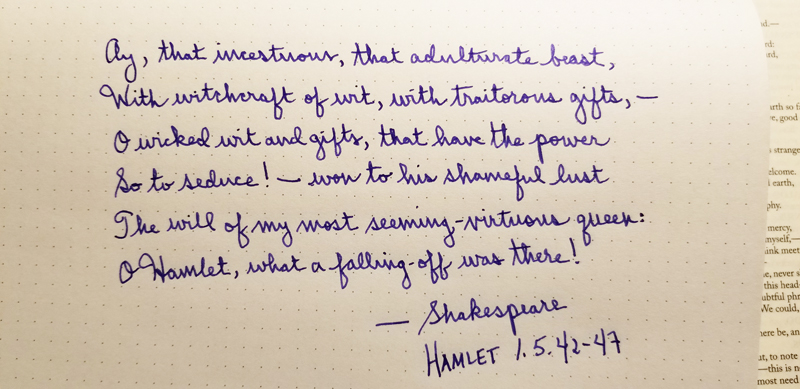 Ay, that incestuous, that adulturate beast,
With witchcraft of wit, with traitorous gifts, —
O wicked wit and gifts, that have the power
So to seduce! — won to his shameful lust
The will of my most seeming-virtuous queen:
O Hamlet, what a falling-off was there!
— Shakespeare
HAMLET 1.5.42-47
d.—
rd:
rd,
arth so f
e, good
strange
elcome.
earth,
phy.
mercy,
myself,—
ink meet
e, never s
this head
ubtful phr
We could,
here be, an
ut, to note
—this is n
most need